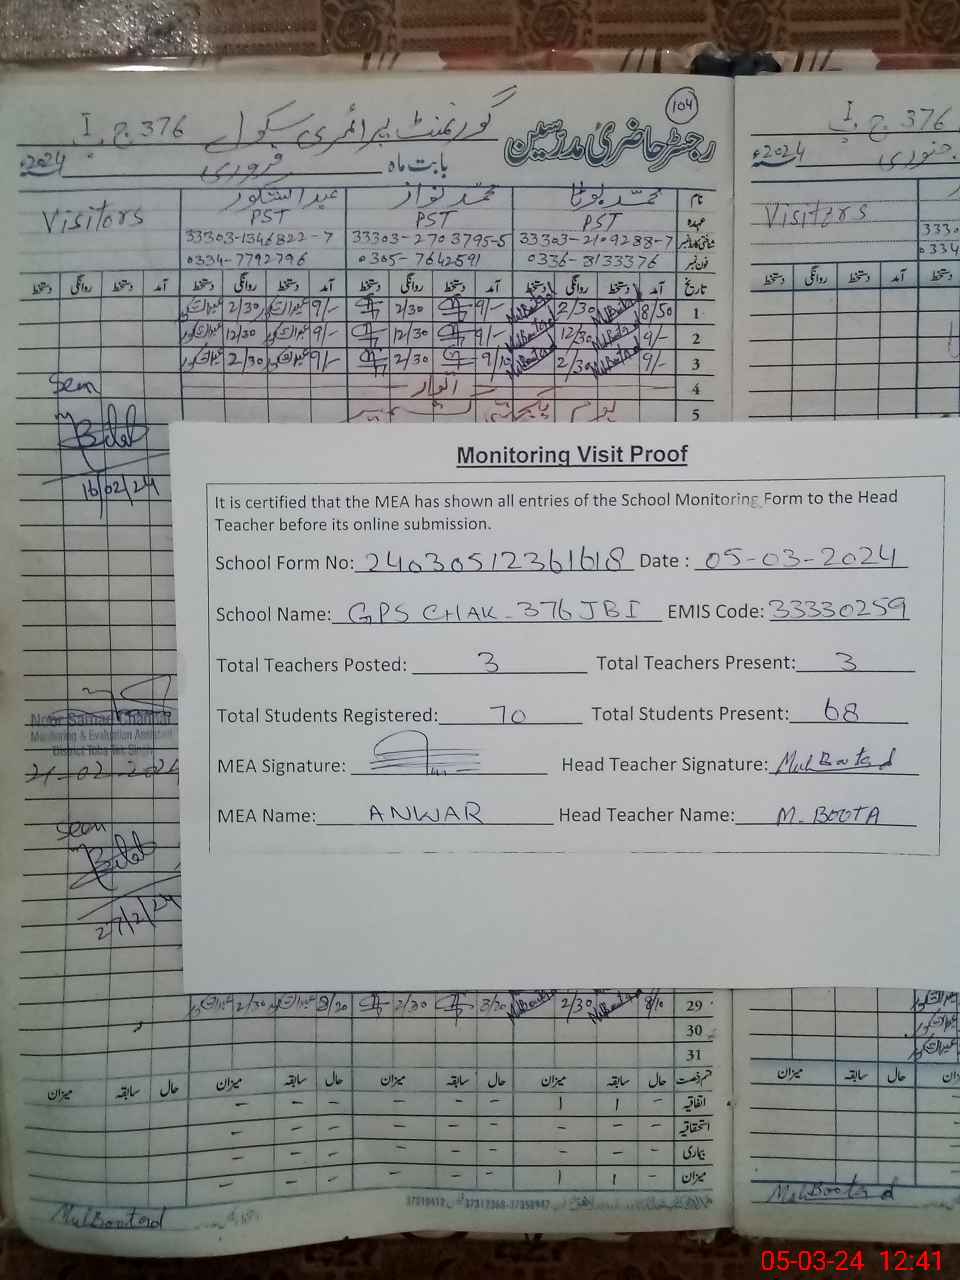 104
رجسٹر حاضری مدرسین گورنمنٹ پرائمری سکول 376 ج ب I
بابت ماہ فروری 2024ء
نام محمد بوٹا محمد نواز عبدالشکور Visitors
عہدہ PST PST PST
شناختی کارڈ نمبر 33303-2109288-7 33303-2703795-5 33303-1346822-7
فون نمبر 0336-3133376 0305-7642591 0334-7792796
تاریخ آمد دستخط روانگی دستخط آمد دستخط روانگی دستخط آمد دستخط روانگی دستخط آمد دستخط روانگی دستخط
1 8/50 MulBootad 2/30 MulBootad 9/- 2/30 9/- 2/30
2 9/- MulBootad 12/30 MulBootad 9/- 12/30 9/- 12/30
3 9/- MulBootad 2/30 MulBootad 9/10 2/30 9/- 2/30
4 اتوار
5 یوم یکجہتی کشمیر
Seen
Bilal
16/02/24
Monitoring Visit Proof
It is certified that the MEA has shown all entries of the School Monitoring Form to the Head
Teacher before its online submission.
School Form No: 24030512361618 Date : 05-03-2024
School Name: GPS CHAK-376JBI EMIS Code: 33330259
Total Teachers Posted: 3 Total Teachers Present: 3
Total Students Registered: 70 Total Students Present: 68
MEA Signature: Head Teacher Signature: MulBootad
MEA Name: ANWAR Head Teacher Name: M. BOOTA
Monitoring & Evaluation Assistant
District Toba Tek Singh
21-02-2024
Seen
Bilal
27/2/24
29 8/10 MulBootad 2/30 MulBootad 2/30 8/20 2/30
30
31
قسم رخصت حال سابقہ میزان حال سابقہ میزان حال سابقہ میزان حال سابقہ میزان
اتفاقیہ - 1 1 - - - - - -
استحقاقیہ - - - - - - - - -
بیماری - - - - - - - - -
میزان - 1 1 - - - - - -
MulBootad
376 ج ب I
جنوری 2024ء
Visitors
آمد دستخط روانگی دستخط
حال سابقہ میزان
MulBootad
05-03-24 12:41